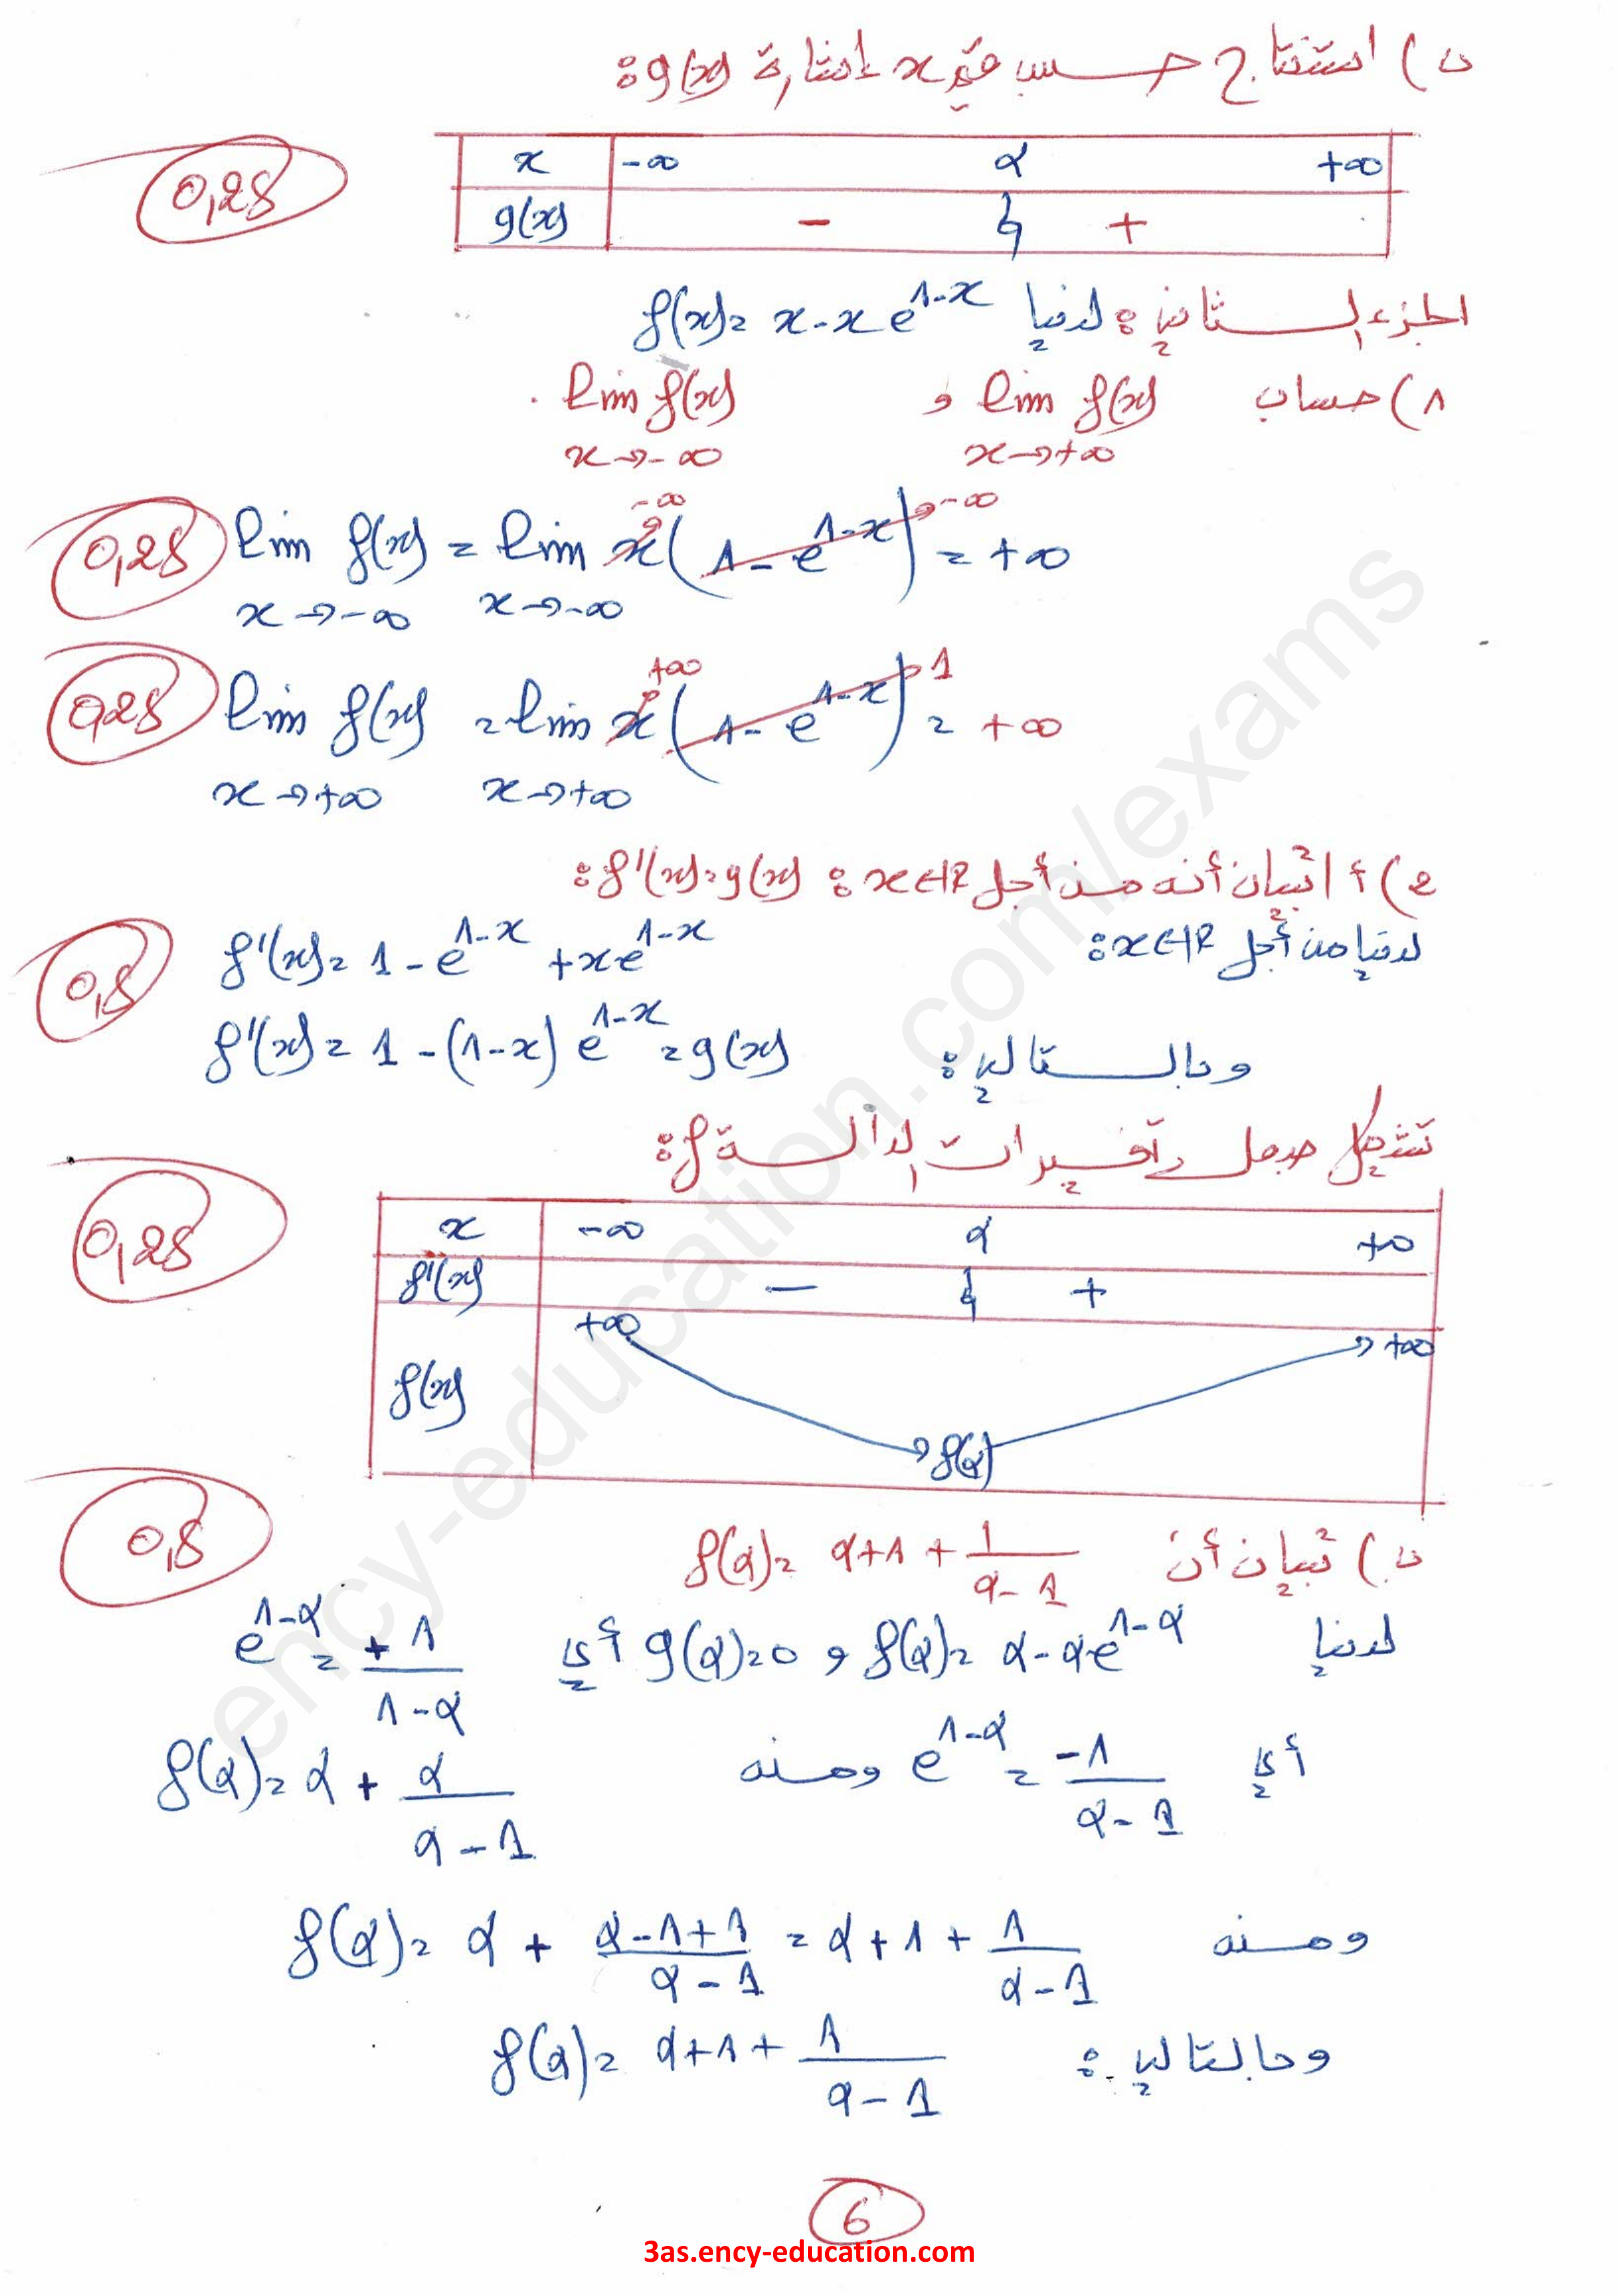 ب) استنتاج حسب قيم x إشارة g(x):
x -∞ α +∞
0,25
g(x) - 0 +
الجزء الثاني: لدينا f(x) = x - x e^{1-x}
1) حساب lim f(x) و lim f(x).
x→+∞ x→-∞
0,25 lim f(x) = lim x (1 - e^{1-x}) = +∞
-∞ -∞
x→-∞ x→-∞
0,25 lim f(x) = lim x (1 - e^{1-x}) = +∞
+∞ 1
x→+∞ x→+∞
2) أ تبيان أنه من أجل x∈ℝ: f'(x) = g(x):
لدينا من أجل x∈ℝ:
0,5 f'(x) = 1 - e^{1-x} + x e^{1-x}
وبالتالي: f'(x) = 1 - (1-x) e^{1-x} = g(x)
تشكيل جدول تغيرات الدالة f:
0,25
x -∞ α +∞
f'(x) - 0 +
f(x) +∞ f(α) +∞
0,5
ب) تبيان أن f(α) = α+1 + \frac{1}{α-1}
لدينا f(α) = α - αe^{1-α} و g(α) = 0 أي e^{1-α} = \frac{+1}{1-α}
أي e^{1-α} = \frac{-1}{α-1} ومنه f(α) = α + \frac{α}{α-1}
ومنه f(α) = α + \frac{α-1+1}{α-1} = α+1 + \frac{1}{α-1}
وبالتالي: f(α) = α+1 + \frac{1}{α-1}
6
3as.ency-education.com
ency-education.com/exams